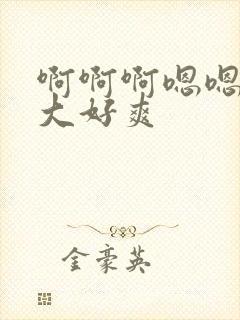 啊啊啊嗯嗯
大好爽
金豪英